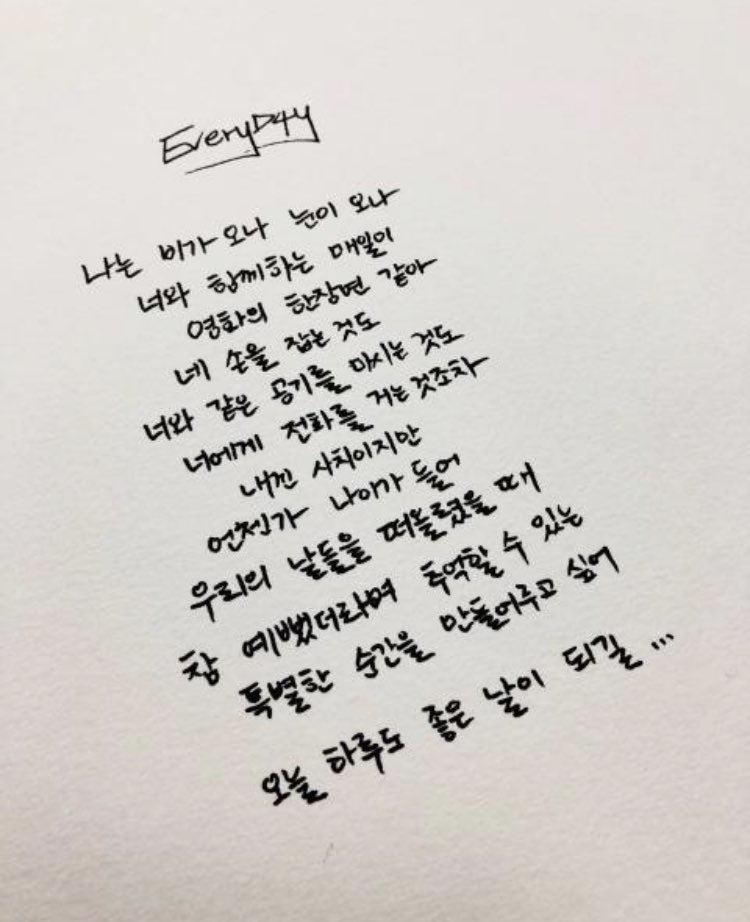 EveryD4y
나는 비가 오나 눈이 오나
너와 함께하는 매일이
영화의 한장면 같아
네 손을 잡는 것도
너와 같은 공기를 마시는 것도
너에게 전화를 거는 것조차
내겐 사치이지만
언젠가 나이가 들어
우리의 날들을 떠올렸을 때
참 예뻤더라며 추억할 수 있는
특별한 순간을 만들어주고 싶어
오늘 하루도 좋은 날이 되길...